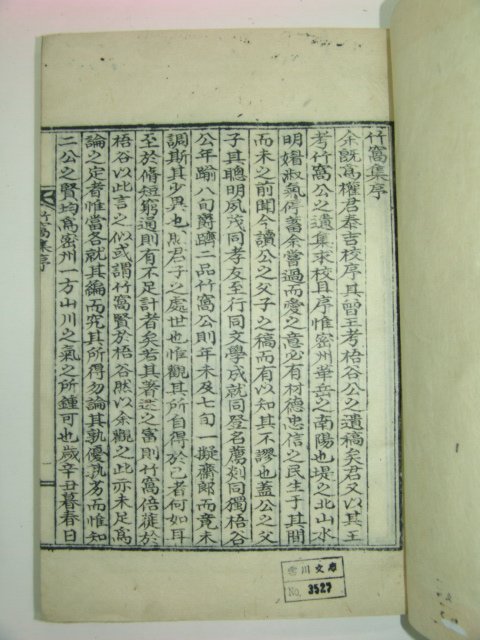 竹窩集序
余旣爲權君泰吉校序其曾王考梧谷公之遺稿矣君又以其王
考竹窩公之遺集求校且序惟密州華岳之南陽也堤之北山水
明媚淑氣停蓄余嘗過而愛之意必有材德忠信之民生于其間
而未之前聞今讀公之父子之稿而有以知其不謬也盖公之父
子其聰明夙茂同孝友至行同文學成就同登名薦剡同獨梧谷
公年踰八旬爵躋二品竹窩公則年未及七旬一擬齋郎而竟未
調斯其少異也然君子之處世也惟觀其所自得於己者何如耳
至於脩短窮通則有不足計者矣若其著述之富則竹窩倍蓰於
梧谷以此言之似或謂竹窩賢於梧谷然以余觀之此亦未足爲
論之定者惟當各就其編而究其所得勿論其孰優孰劣而惟知
二公之賢均爲密州一方山川之氣之所鍾可也歲辛丑暮春日
竹窩集序
一
雪川文庫
No. 3527